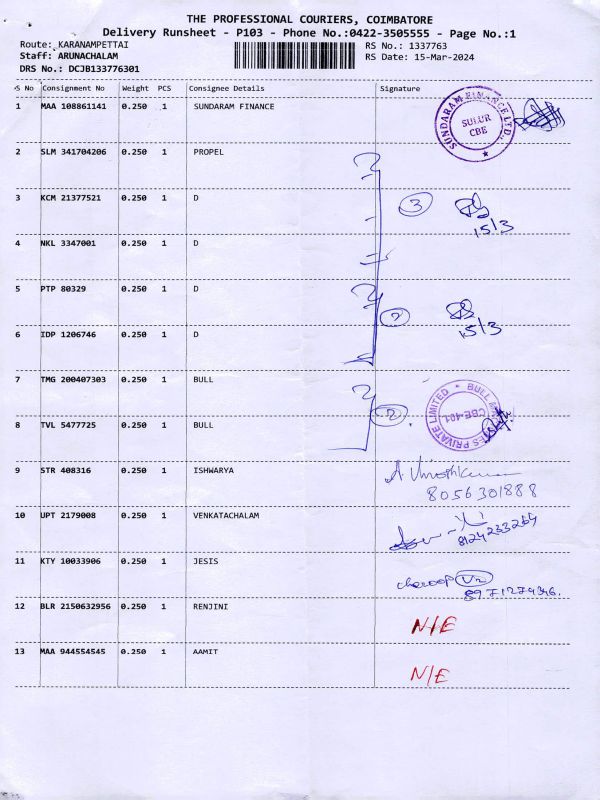 THE PROFESSIONAL COURIERS, COIMBATORE
Delivery Runsheet - P103 - Phone No.:0422-3505555 - Page No.:1
Route: KARANAMPETTAI RS No.: 1337763
Staff: ARUNACHALAM RS Date: 15-Mar-2024
DRS No.: DCJB133776301
S No Consignment No Weight PCS Consignee Details Signature
1 MAA 108861141 0.250 1 SUNDARAM FINANCE
SUNDARAM FINANCE LTD.,
SULUR
CBE
2 SLM 341704206 0.250 1 PROPEL
3 KCM 21377521 0.250 1 D
3
15/3
4 NKL 3347001 0.250 1 D
5 PTP 80329 0.250 1 D
2
15/3
6 IDP 1206746 0.250 1 D
7 TMG 200407303 0.250 1 BULL
2
8 TVL 5477725 0.250 1 BULL
BULL
PRIVATE LIMITED
CBE-401
9 STR 408316 0.250 1 ISHWARYA
8056301888
10 UPT 2179008 0.250 1 VENKATACHALAM
8124233269
11 KTY 10033906 0.250 1 JESIS
12 BLR 2150632956 0.250 1 RENJINI
N/E
13 MAA 944554545 0.250 1 AAMIT
N/E